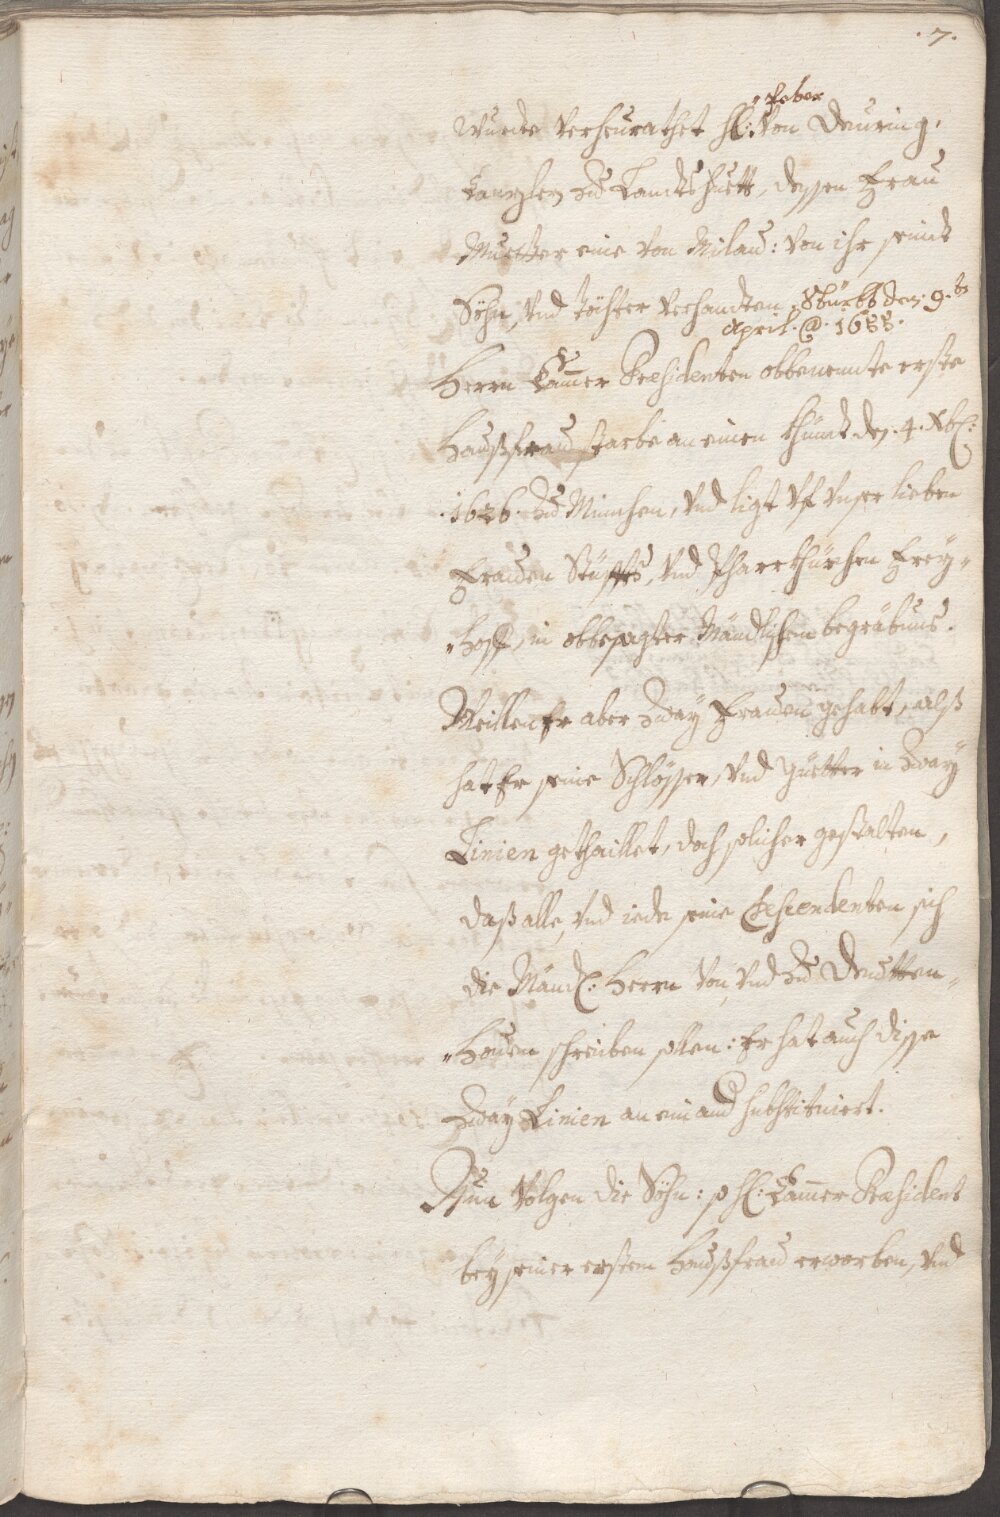 .7.
Peter
Wurde verheurathet H: von Deuring,
Canzler zu Landtshuett, dessen Frau
Muetter eine von Milau: von ihr seint
Söhn, vnd töchter verhandten. Sturbt den. 9.t
April. @. 1655.
Herrn Camer Præsidenten obbenennte erste
Haußfrau starbe an einen Khündt den. 4. Xb:
.1626. zu Münchn, vnd ligt vf vnser lieben
Frauen Stüffts, vnd Pfarrkhürchen Frey„
„hoff, in obbesagter Mändlischen begräbnus.
Weillen Er aber Zway Frauen gehabt, alß
hat Er seine Schlösser, vnd güetter in Zway
Linien gethaillet, doch solicher gestalten,
daß alle, vnd iede seine Descendenten sich
die Mändl: Herrn von, vnd zu Deutten„
„houen schreiben sollen: Er hat auch disse
Zway Linien an einand substituiert.
Nun volgen die Söhn: so H: Camer Præsident
bey seiner erstern Haußfrau erworben, vnd